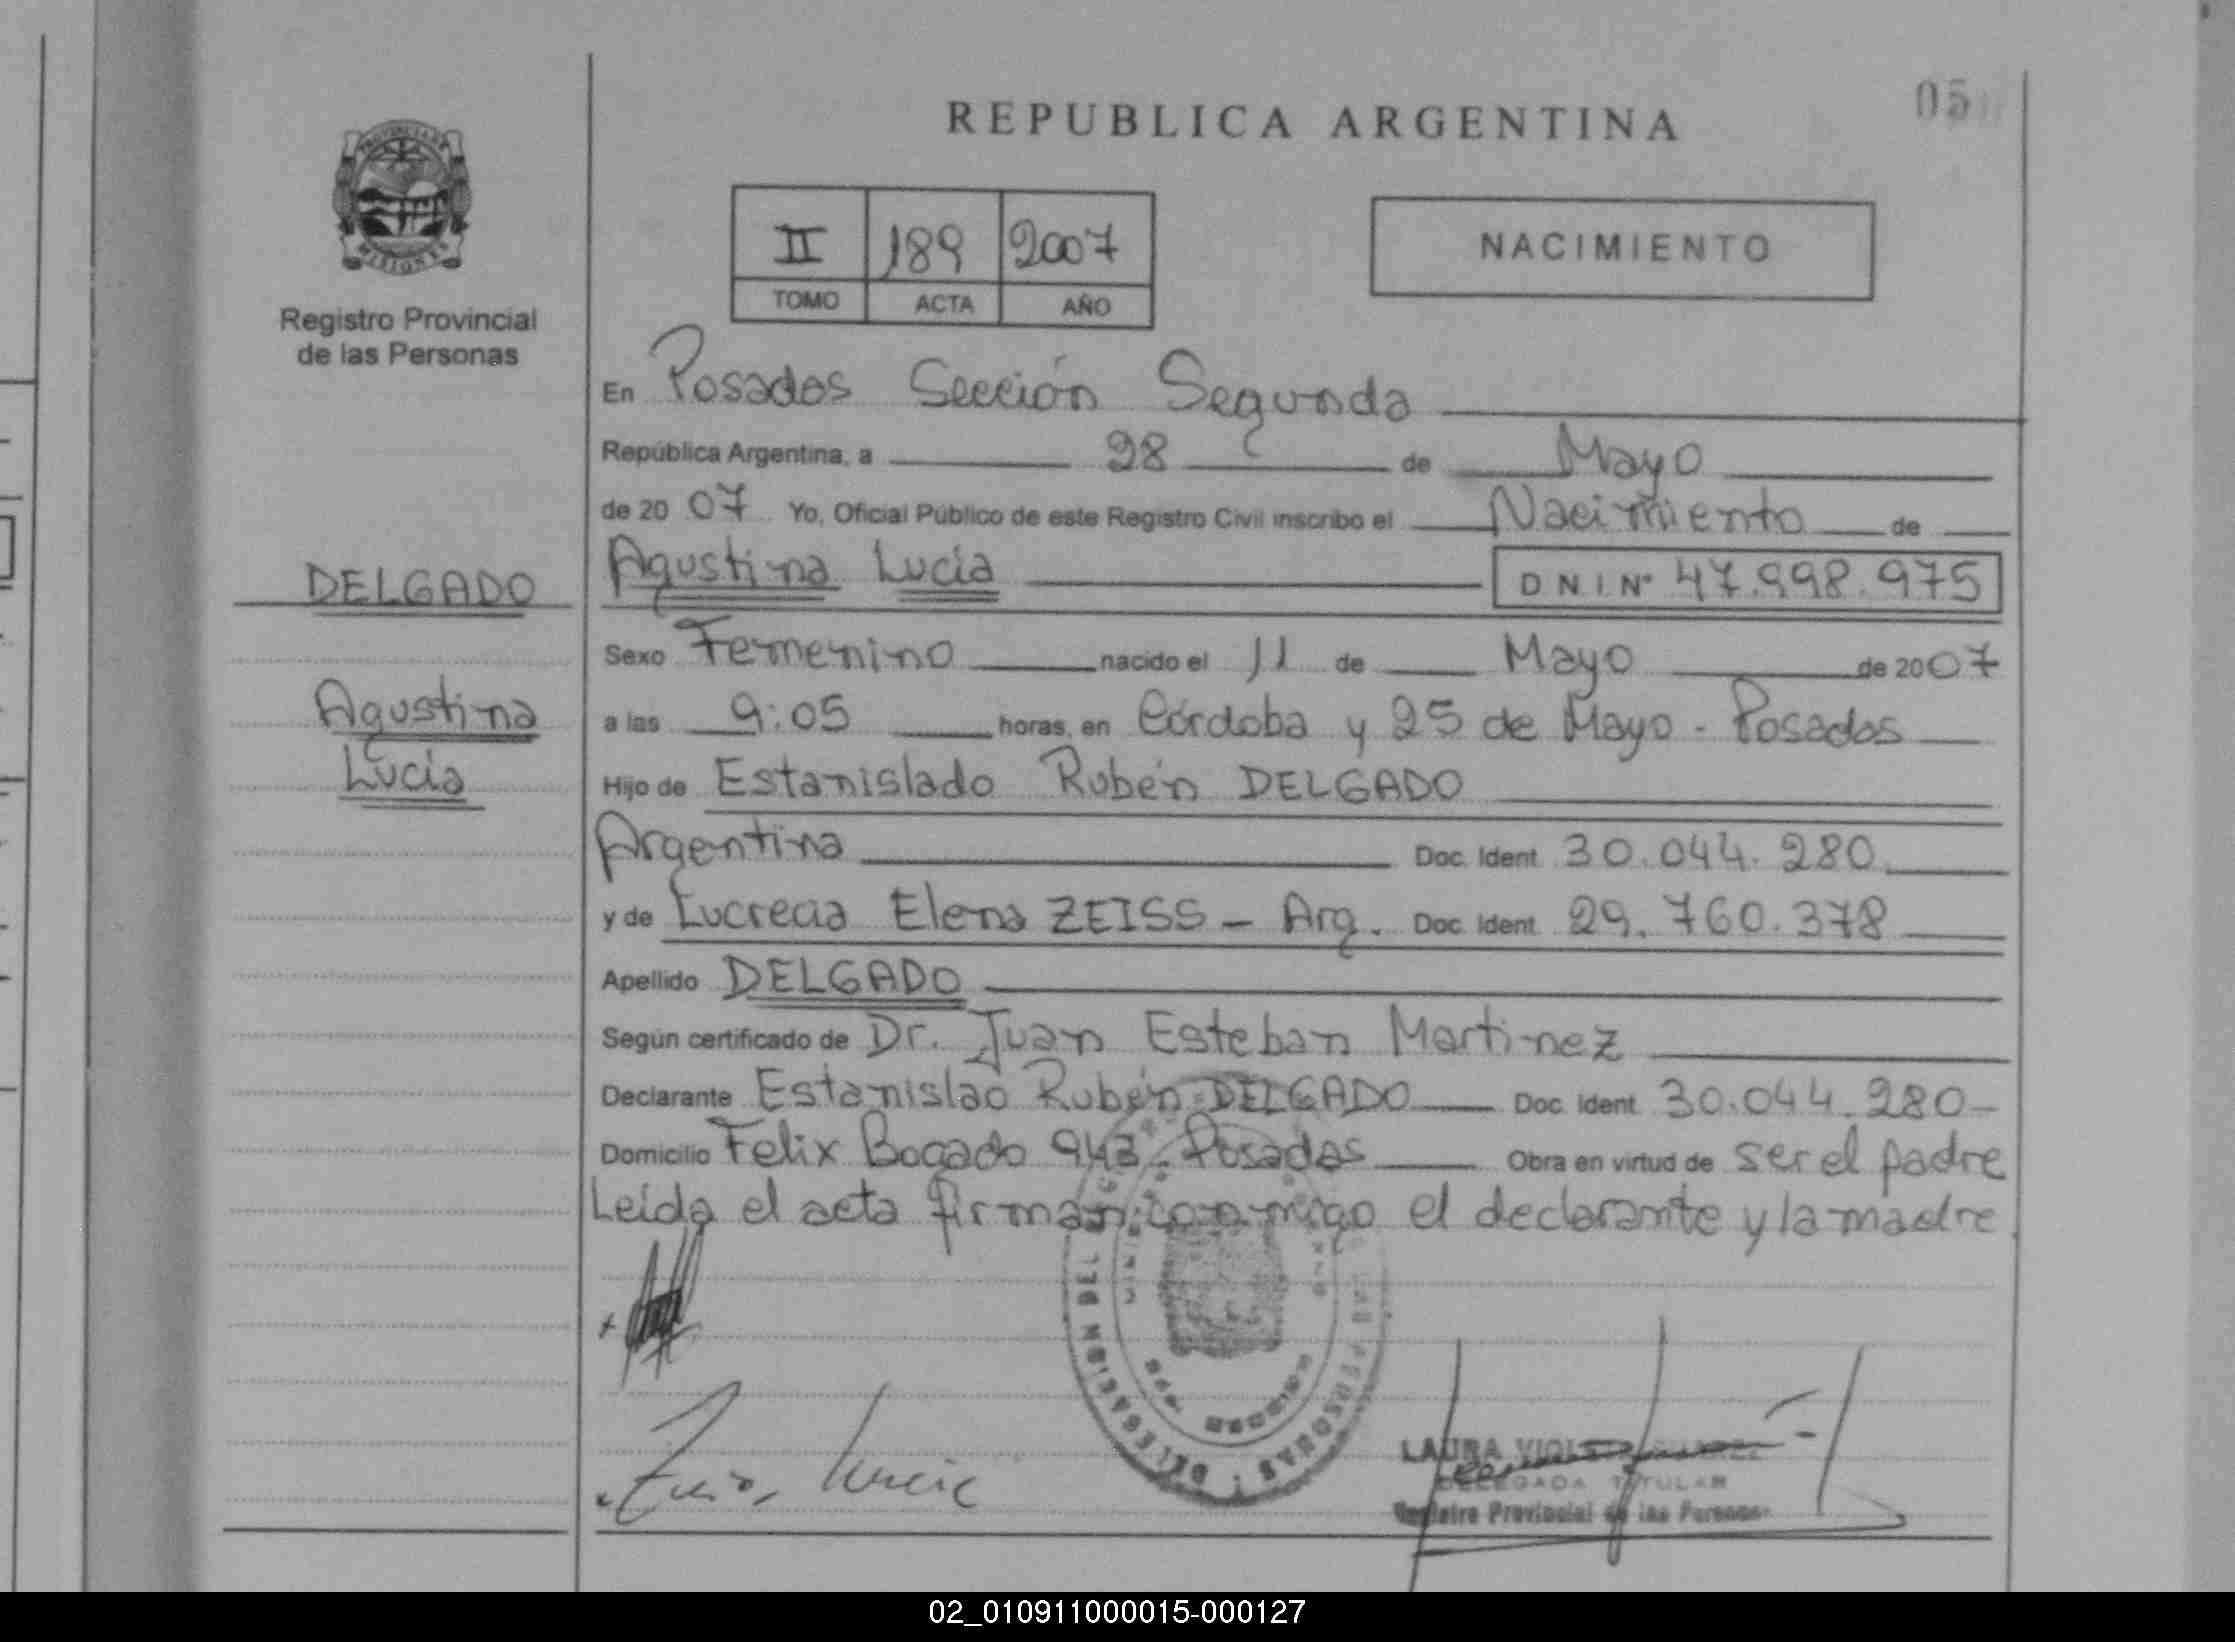 REPUBLICA ARGENTINA
05
PROVINCIA DE
MISIONES
Registro Provincial
de las Personas
II 189 2007
TOMO ACTA AÑO
NACIMIENTO
En Posadas Sección Segunda
República Argentina, a 28 de Mayo
de 2007 Yo, Oficial Público de este Registro Civil inscribo el Nacimiento de
DELGADO
Agustina
Lucía
Agustina Lucía D N I. Nº 47.998.975
Sexo Femenino nacido el 11 de Mayo de 2007
a las 9:05 horas, en Córdoba y 25 de Mayo - Posadas
Hijo de Estanislado Rubén DELGADO
Argentina Doc. Ident. 30.044.280
y de Lucrecia Elena ZEISS - Arg. Doc. Ident. 29.760.378
Apellido DELGADO
Según certificado de Dr. Juan Esteban Martinez
Declarante Estanislao Rubén DELGADO Doc. Ident. 30.044.280-
Domicilio Felix Bogado 943. Posadas Obra en virtud de ser el padre
Leída el acta firman conmigo el declarante y la madre
LAURA
DELEGADA TITULAR
Registro Provincial de las Personas
02_010911000015-000127